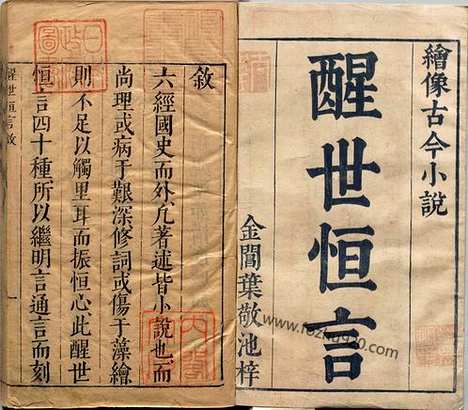 繪像古今小說
醒世恒言
金閶葉敬池梓
敘
六經國史而外凢著述皆小說也而
尚理或病于艱深修詞或傷于藻繪
則不足以觸里耳而振恒心此醒世
恒言四十種所以繼明言通言而刻
醒世恒言敘
一